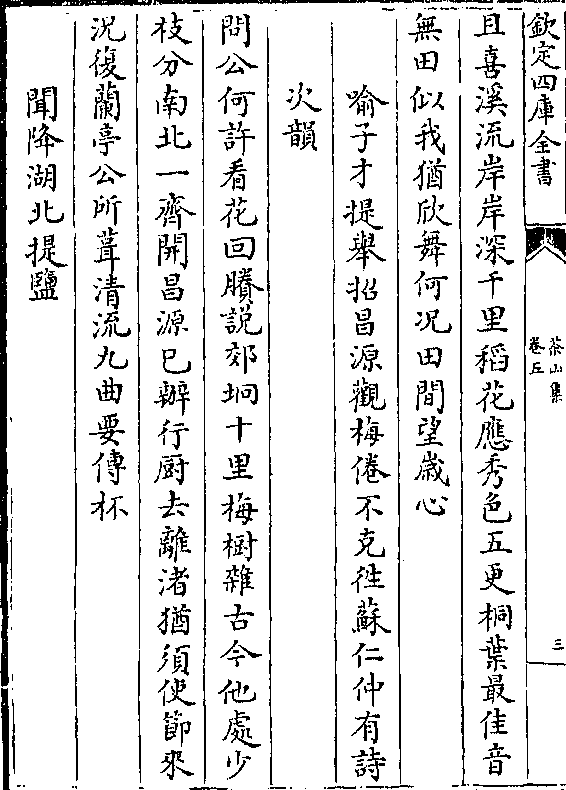 欽定四庫全書
茶山集
卷五
三
且喜溪流岸岸深千里稻花應秀色五更桐葉最佳音
無田似我猶欣舞何况田間望歲心
喻子才提舉招昌源觀梅倦不克徃蘇仁仲有詩
次韻
問公何許看花回賸說郊坰十里梅樹雜古今他處少
枝分南北一齊開昌源已辦行厨去離渚猶須使節來
況復蘭亭公所葺清流九曲要傳杯
聞降湖北提鹽